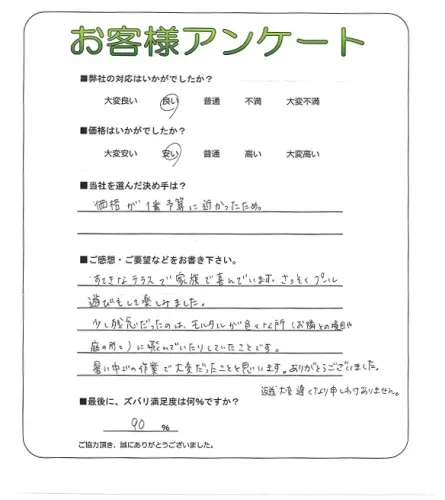 お客様アンケート
■弊社の対応はいかがでしたか?
大変良い 良い 普通 不満 大変不満
■価格はいかがでしたか?
大変安い 安い 普通 高い 大変高い
■当社を選んだ決め手は?
価格が1番予算に近かったため。
■ご感想・ご要望などをお書き下さい。
すてきなテラスで家族で喜んでいます。さっそくプール
遊びもして楽しみました。
少し残念だったのは、モルタルが色々な所(お隣との境目や
庭の所々)に飛んでいたりしていたことです。
暑い中での作業で大変だったことと思います。ありがとうございました。
大変遅くなり申しわけありません。
■最後に、ズバリ満足度は何%ですか?
90 %
ご協力頂き、誠にありがとうございました。